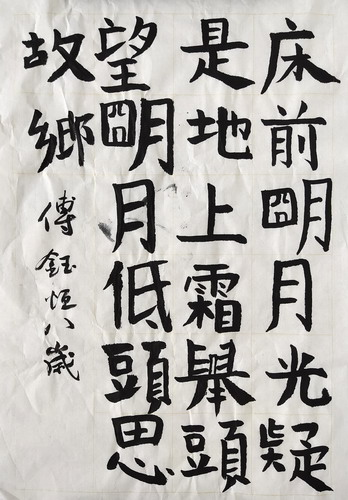 床前明月光疑
是地上霜舉頭
望明月低頭思
故鄉
傅鈺恒八歲